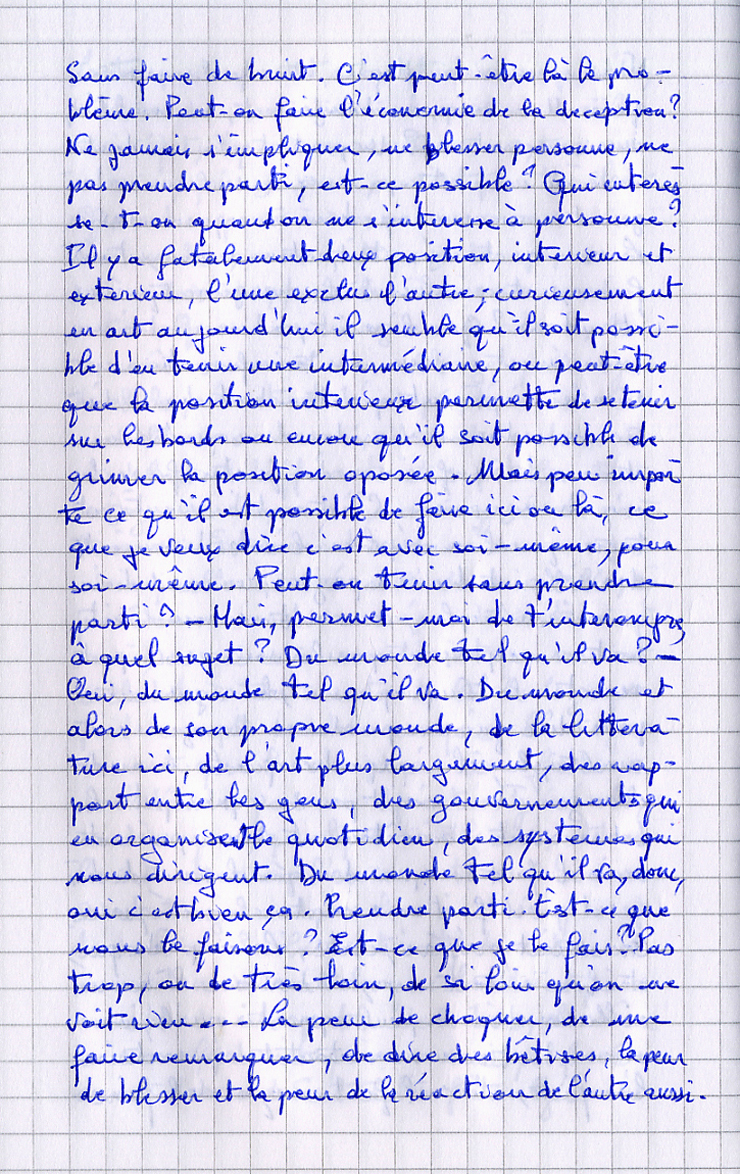 Sans faire de bruit. C'est peut-être là le pro-
blème. Peut-on faire l'économie de la deception?
Ne jamais s'impliquer, ne blesser personne, ne
pas prendre parti, est-ce possible? Qui interes
se-t-on quand on ne s'interesse à personne?
Il y a fatalement deux position, interieur et
exterieur, l'une exclus l'autre; curieusement
en art aujourd'hui il semble qu'il soit possi-
ble d'en tenir une intermédiaire, ou peut-être
que la position interieure permette de se tenir
sur les bords ou encore qu'il soit possible de
grimer la position oposée. Mais peu impor
te ce qu'il est possible de faire ici ou là, ce
que je veux dire c'est avec soi-même, pour
soi-même. Peut-on tenir sans prendre
parti? - Mais, permet-moi de t'interompre,
à quel sujet? Du monde tel qu'il va? -
Oui, du monde tel qu'il va. Du monde et
alors de son propre monde, de la littera-
ture ici, de l'art plus largement, des rap-
port entre les gens, des gouvernements qui
en organisent le quotidien, des systemes qui
nous dirigent. Du monde tel qu'il va, donc,
oui c'est bien ça. Prendre parti. Est-ce que
nous le faisons? Est-ce que je le fais? Pas
trop, ou de très loin, de si loin qu'on ne
voit rien... La peur de choquer, de me
faire remarquer, de dire des bêtises, la peur
de blesser et la peur de la réaction de l'autre aussi.